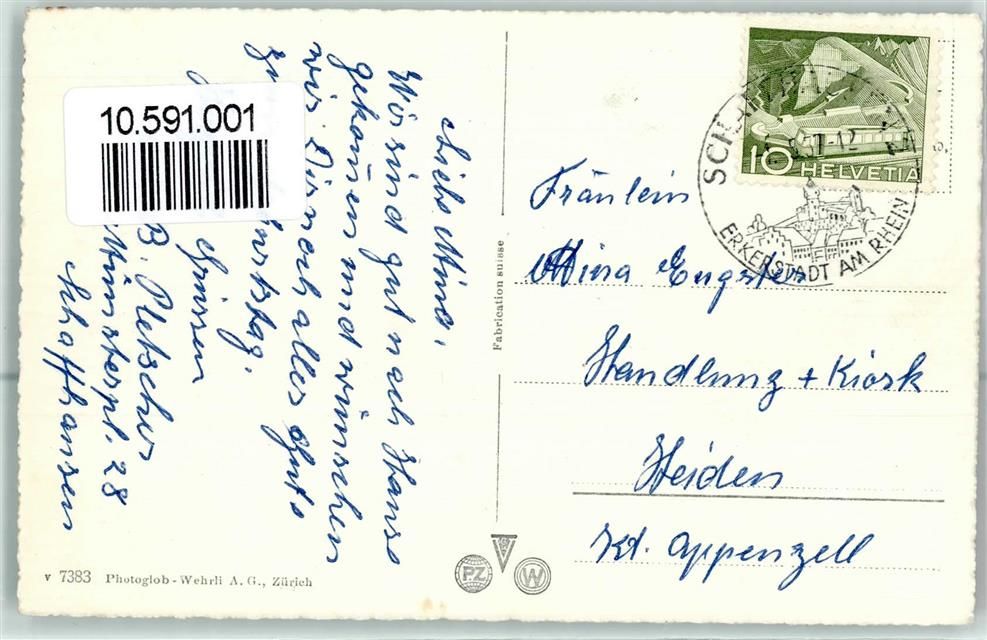 10.591.001
Liebe Mina.
Wir sind gut nach Hause
gekommen und wünschen
wir Dir noch alles Gute
zum
Grüssen
B. Pletscher
Münsterpl. 28
Schaffhausen
v 7383 Photoglob-Wehrli A. G., Zürich
Fabrication suisse
PZ
W
10 HELVETIA
ERKERSTADT AM RHEIN
Fräulein
Mina Engster
Handlung + Kiosk
Heiden
Kt. Appenzell